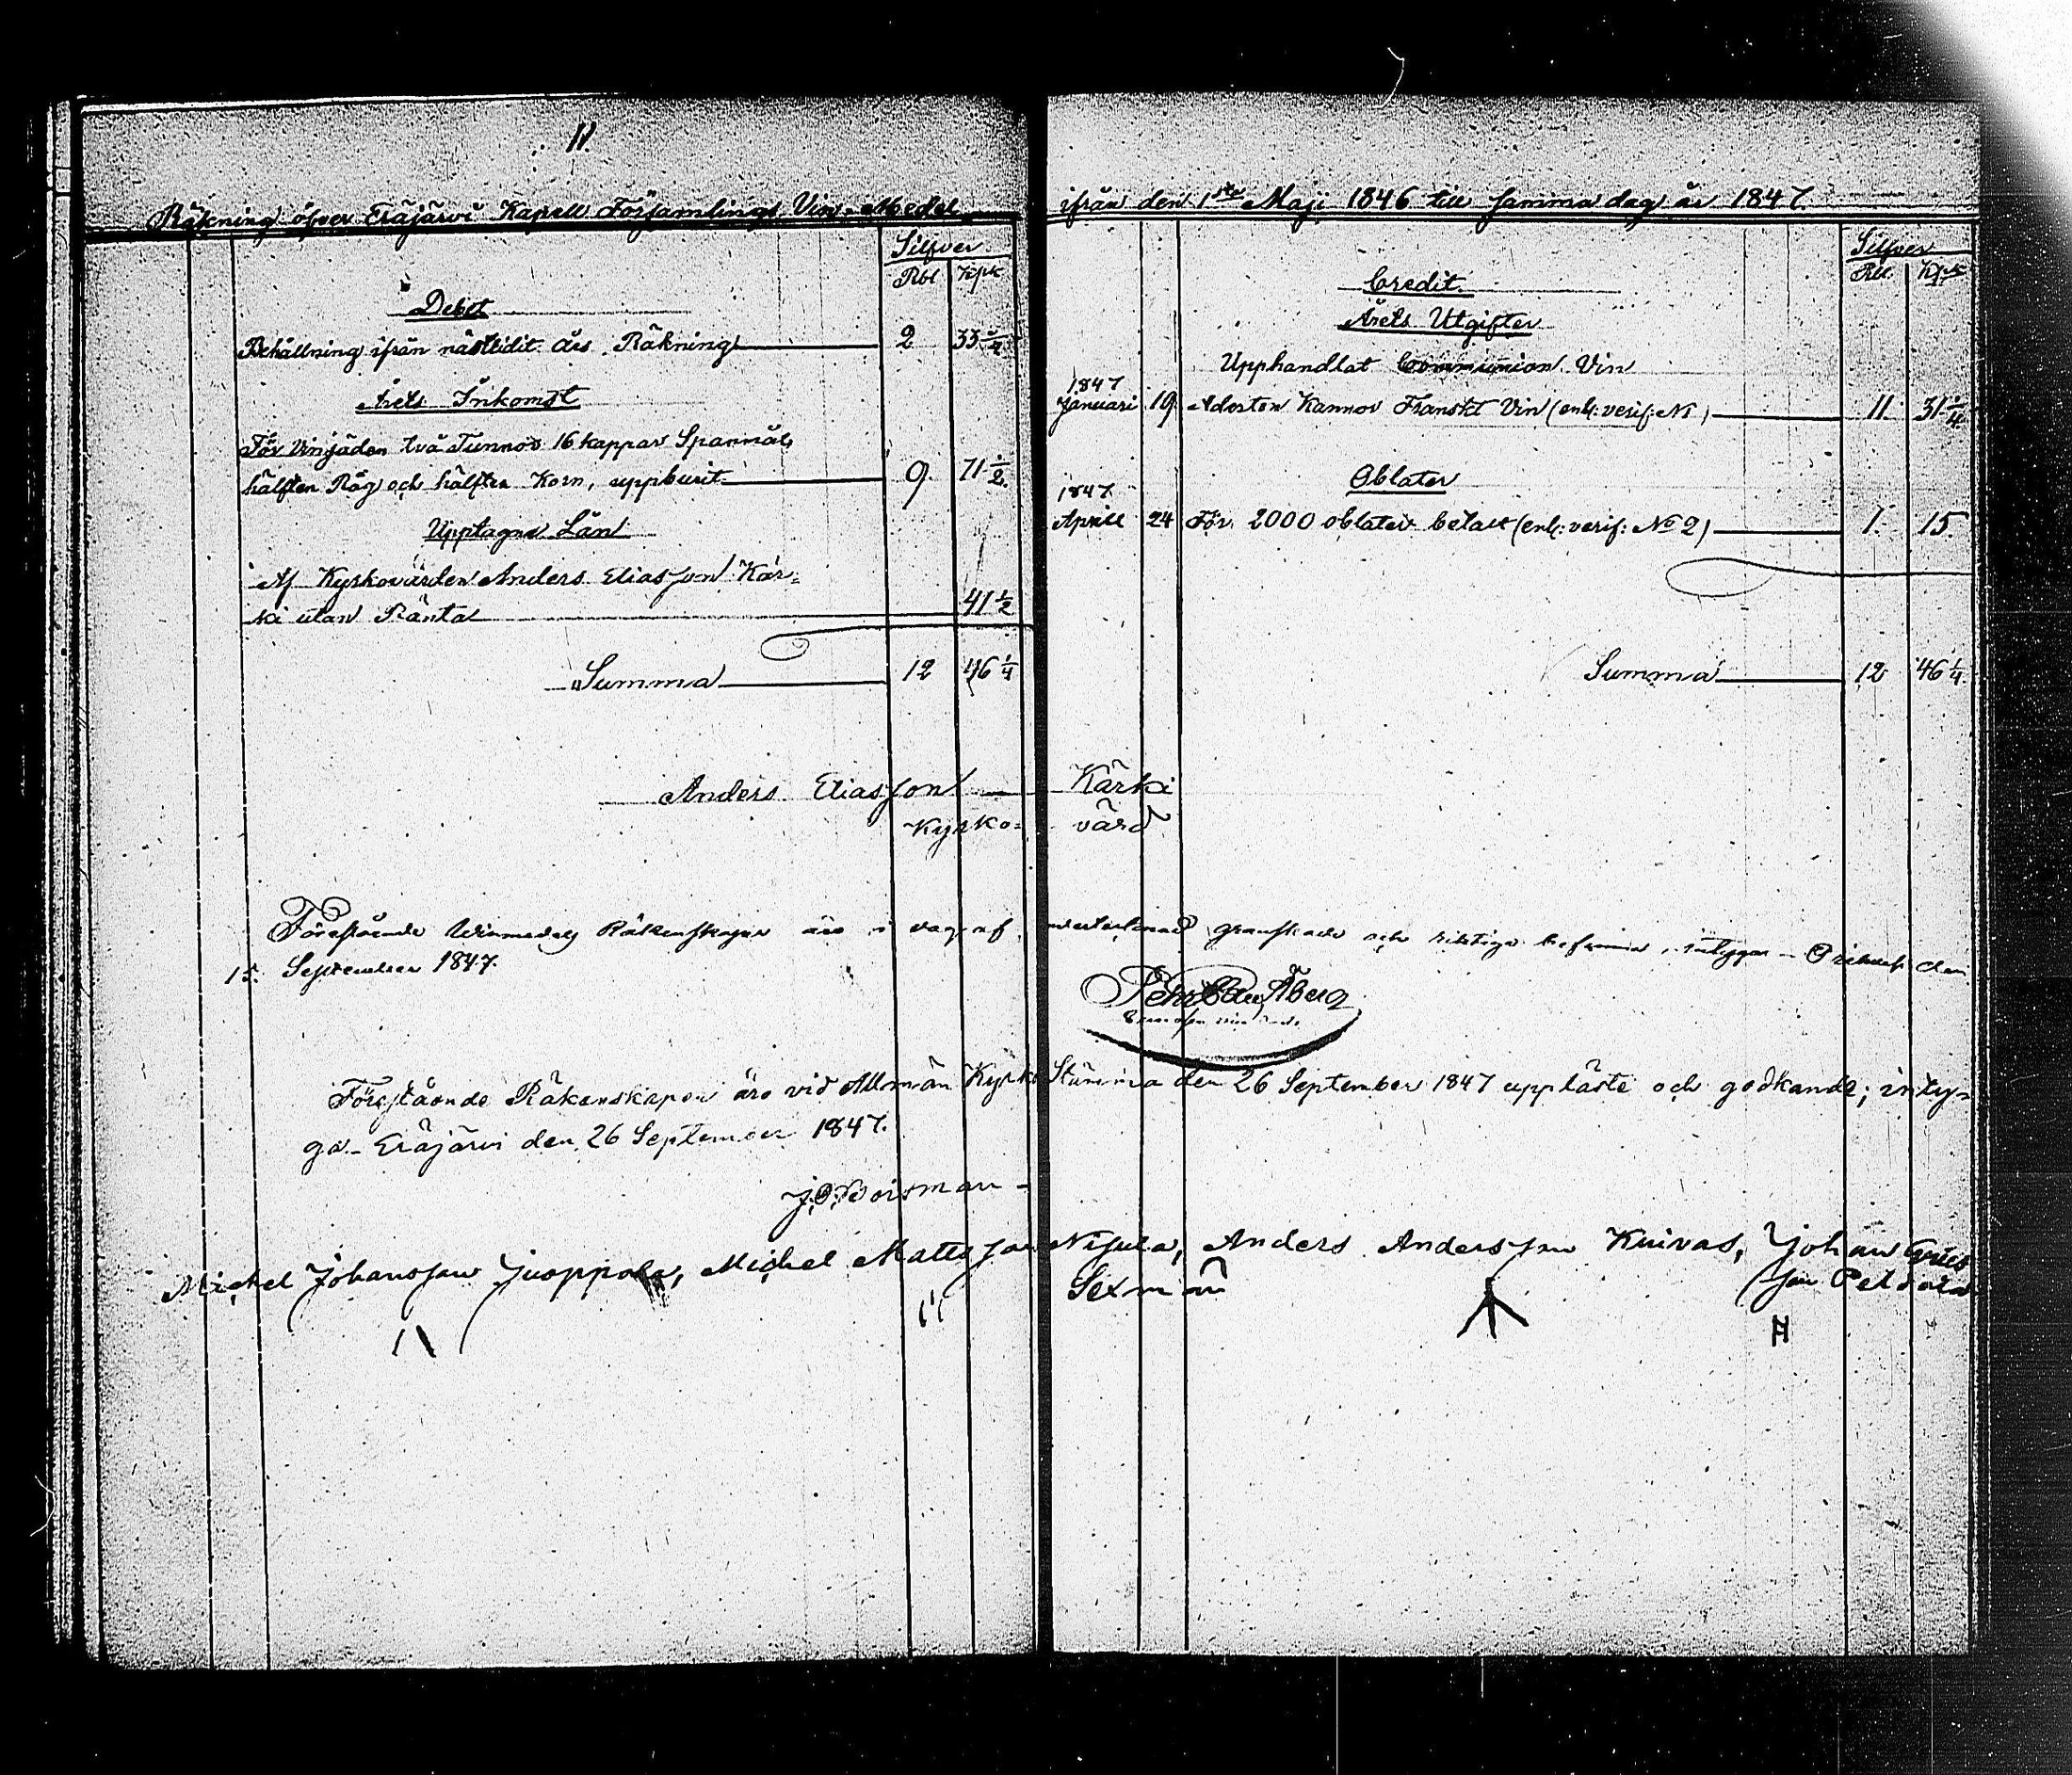 11.
Räkning öfver Eräjärvi Kapell Församlings Vin-Medel
Silfver
Rbl Kpk
Debet
Behållning ifrån nästledit års Räkning 2 33 1/4
Årets Inkomst
För Vinsäden två Tunnor 16 kappar Spannmål
hälften Råg och hälften Korn, uppburit 9. 71 1/2
Upptagne Lån
Af Kyrkovärden Anders Eliasson Kär-
ki utan Ränta 41 1/2
Summa 12 46 1/4
ifrån den 1ste Maji 1846 till samma dag år 1847.
Silfver
Rbl. Kpk
Credit.
Årets Utgifter
Upphandlat Communion Vin
1847
Januari 19. Aderton Kannor Franskt Vin (enl: verif: N1) 11. 31 1/4
Oblater
1847
Aprill 24 För 2000 oblater betalt (enl: verif: No 2) 1. 15.
Summa 12 46 1/4
Anders Eliasson Kärki
Kyrko- värd
Förestående Räkenskaper äro i dag af undertecknad granskade och riktige befunne, intygar - Orihvesi den
15. September 1847.
Pehr Åberg
Förestående Räkenskaper äro vid Allmän Kyrko Stämma den 26 September 1847 uppläste och godkände; inty-
ga - Eräjärvi den 26 September 1847.
Michel Johansson Juoppola, Michel Mattsson Nisula, Anders Andersson Kuivas, Johan
Sexmän son